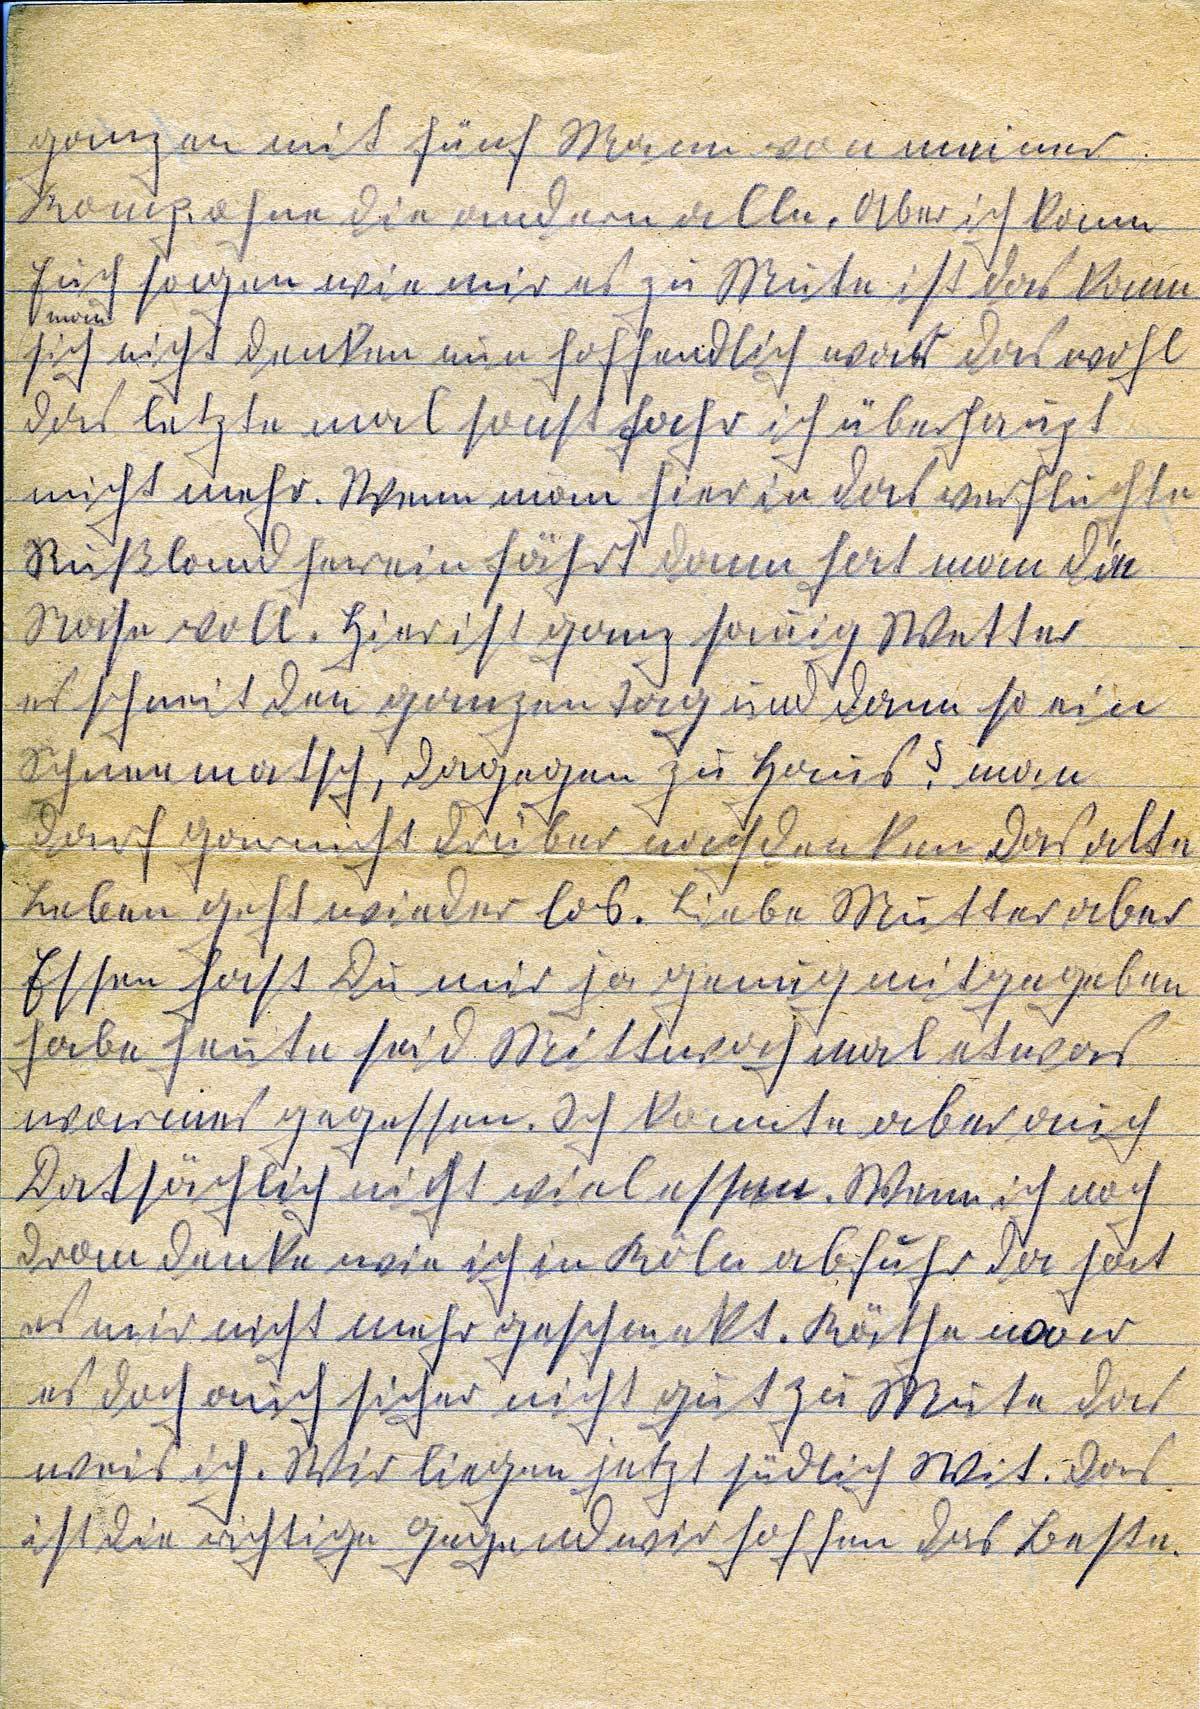 ganzen mit fünf Mann von meiner
Komp. ohne die andern alle. Aber ich kann
Euch sagen wie mir es zu Mute ist das kann
man
sich nicht denken nun hoffendlich war das wohl
das letzte mal sonst fahr ich überhaupt
nicht mehr. Wenn man hier in das verfluchte
Rußland herein fährt dann hat man die
Nase voll. Hier ist ganz sauig Wetter
es schneit den ganzen Tag und dann so ein
Schneematsch, dagegen zu Haus? man
darf garnicht drüber nachdenken das alte
Leben geht wieder los. Liebe Mutter aber
Essen hast Du mir ja genug mitgegeben
habe heute seid Mittwoch mal etwas
warmes gegessen. Ich konnte aber auch
Datsächlich nicht viel essen. Wenn ich noch
dran denke wie ich in Köln abfuhr da hat
es mir nicht mehr geschmekt. Käthe war
es doch auch sicher nicht gut zu Mute das
weis ich. Wir liegen jetzt südlich Wit. Das
ist die richtige Gegend wir hoffen das Beste.